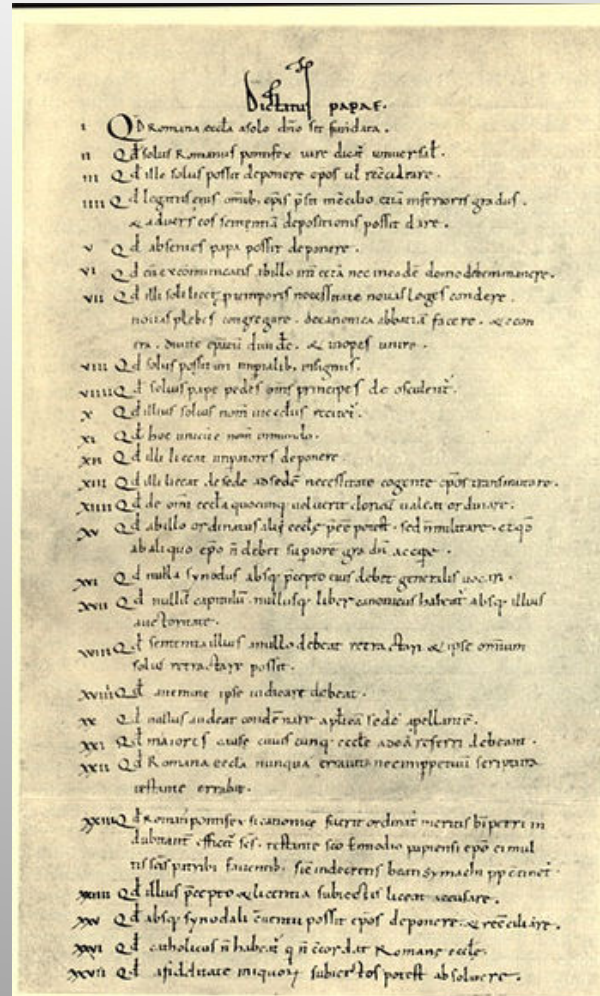 Dictatus papae.
I QD Romana eccła a solo dño sit fundata.
II Qđ solus Romanus pontifex iure dicat universał.
III Qđ ille solus possit deponere epos ul recciliare.
IIII Qđ legatus eius omib. epis psit in cilio etiā inferioris gradus.
& adversus eos sententiā depositionis possit dare.
V Qđ absentes papa possit deponere.
VI Qđ cū excomunicatis ab illo int cetā nec in eadē domo debem manere.
VII Qđ illi soli licet p temporis necessitate novas leges condere.
novas plebes congregare. de canonica abbatiā facere. & econ
tra. divite epatū dividē. & inopes unire.
VIII Qđ solus possit uti impialib. insigniis.
VIIII Qđ solius pape pedes oms principes deosculent.
X Qđ illius solius nom in ecclis recitet.
XI Qđ hoc unicū ē nom in mundo.
XII Qđ illi liceat impatores deponere.
XIII Qđ illi liceat de sede ad sedē necessitate cogente epos transmutare.
XIIII Qđ de omi eccła quocunq voluerit clericū valeat ordinare.
XV Qđ ab illo ordinatus alii ecclę peē potest. sed ñ militare. et qđ
ab aliquo epo ñ debet supiorē gradū accipe.
XVI Qđ nulla synodus absq pcepto eius debet generalis vocari.
XVII Qđ nullū capitulū nullusq liber canonicus habeat absq illius
auctoritate.
XVIII Qđ sententia illius a nullo debeat retractari & ipse omium
solus retractare possit.
XVIIII Qđ a nemine ipse iudicare debeat.
XX Qđ nullus audeat condēnare aplicā sedē apellante.
XXI Qđ maiores cause cuiuscunq ecclę ad eā referri debeant.
XXII Qđ Romana eccła nunquā erravit nec imppetuū scriptura
testante errabit.
XXIII Qđ Roman pontifex si canonice fuerit ordinat meritis bi petri in
dubitant efficit scs. testante sco Ennodio papiensi epo ei mul
tis scis patribs faventib. sic in decretis beati symachi pp ctinet.
XXIIII Qđ illius pcepto & licentia subiectis liceat accusare.
XXV Qđ absq synodali cventu possit epos deponere & recciliare.
XXVI Qđ catholicus ñ habeat q ñ ccordat Romanę ecclę.
XXVII Qđ a fidelitate iniquor subiectos potest absolvere.